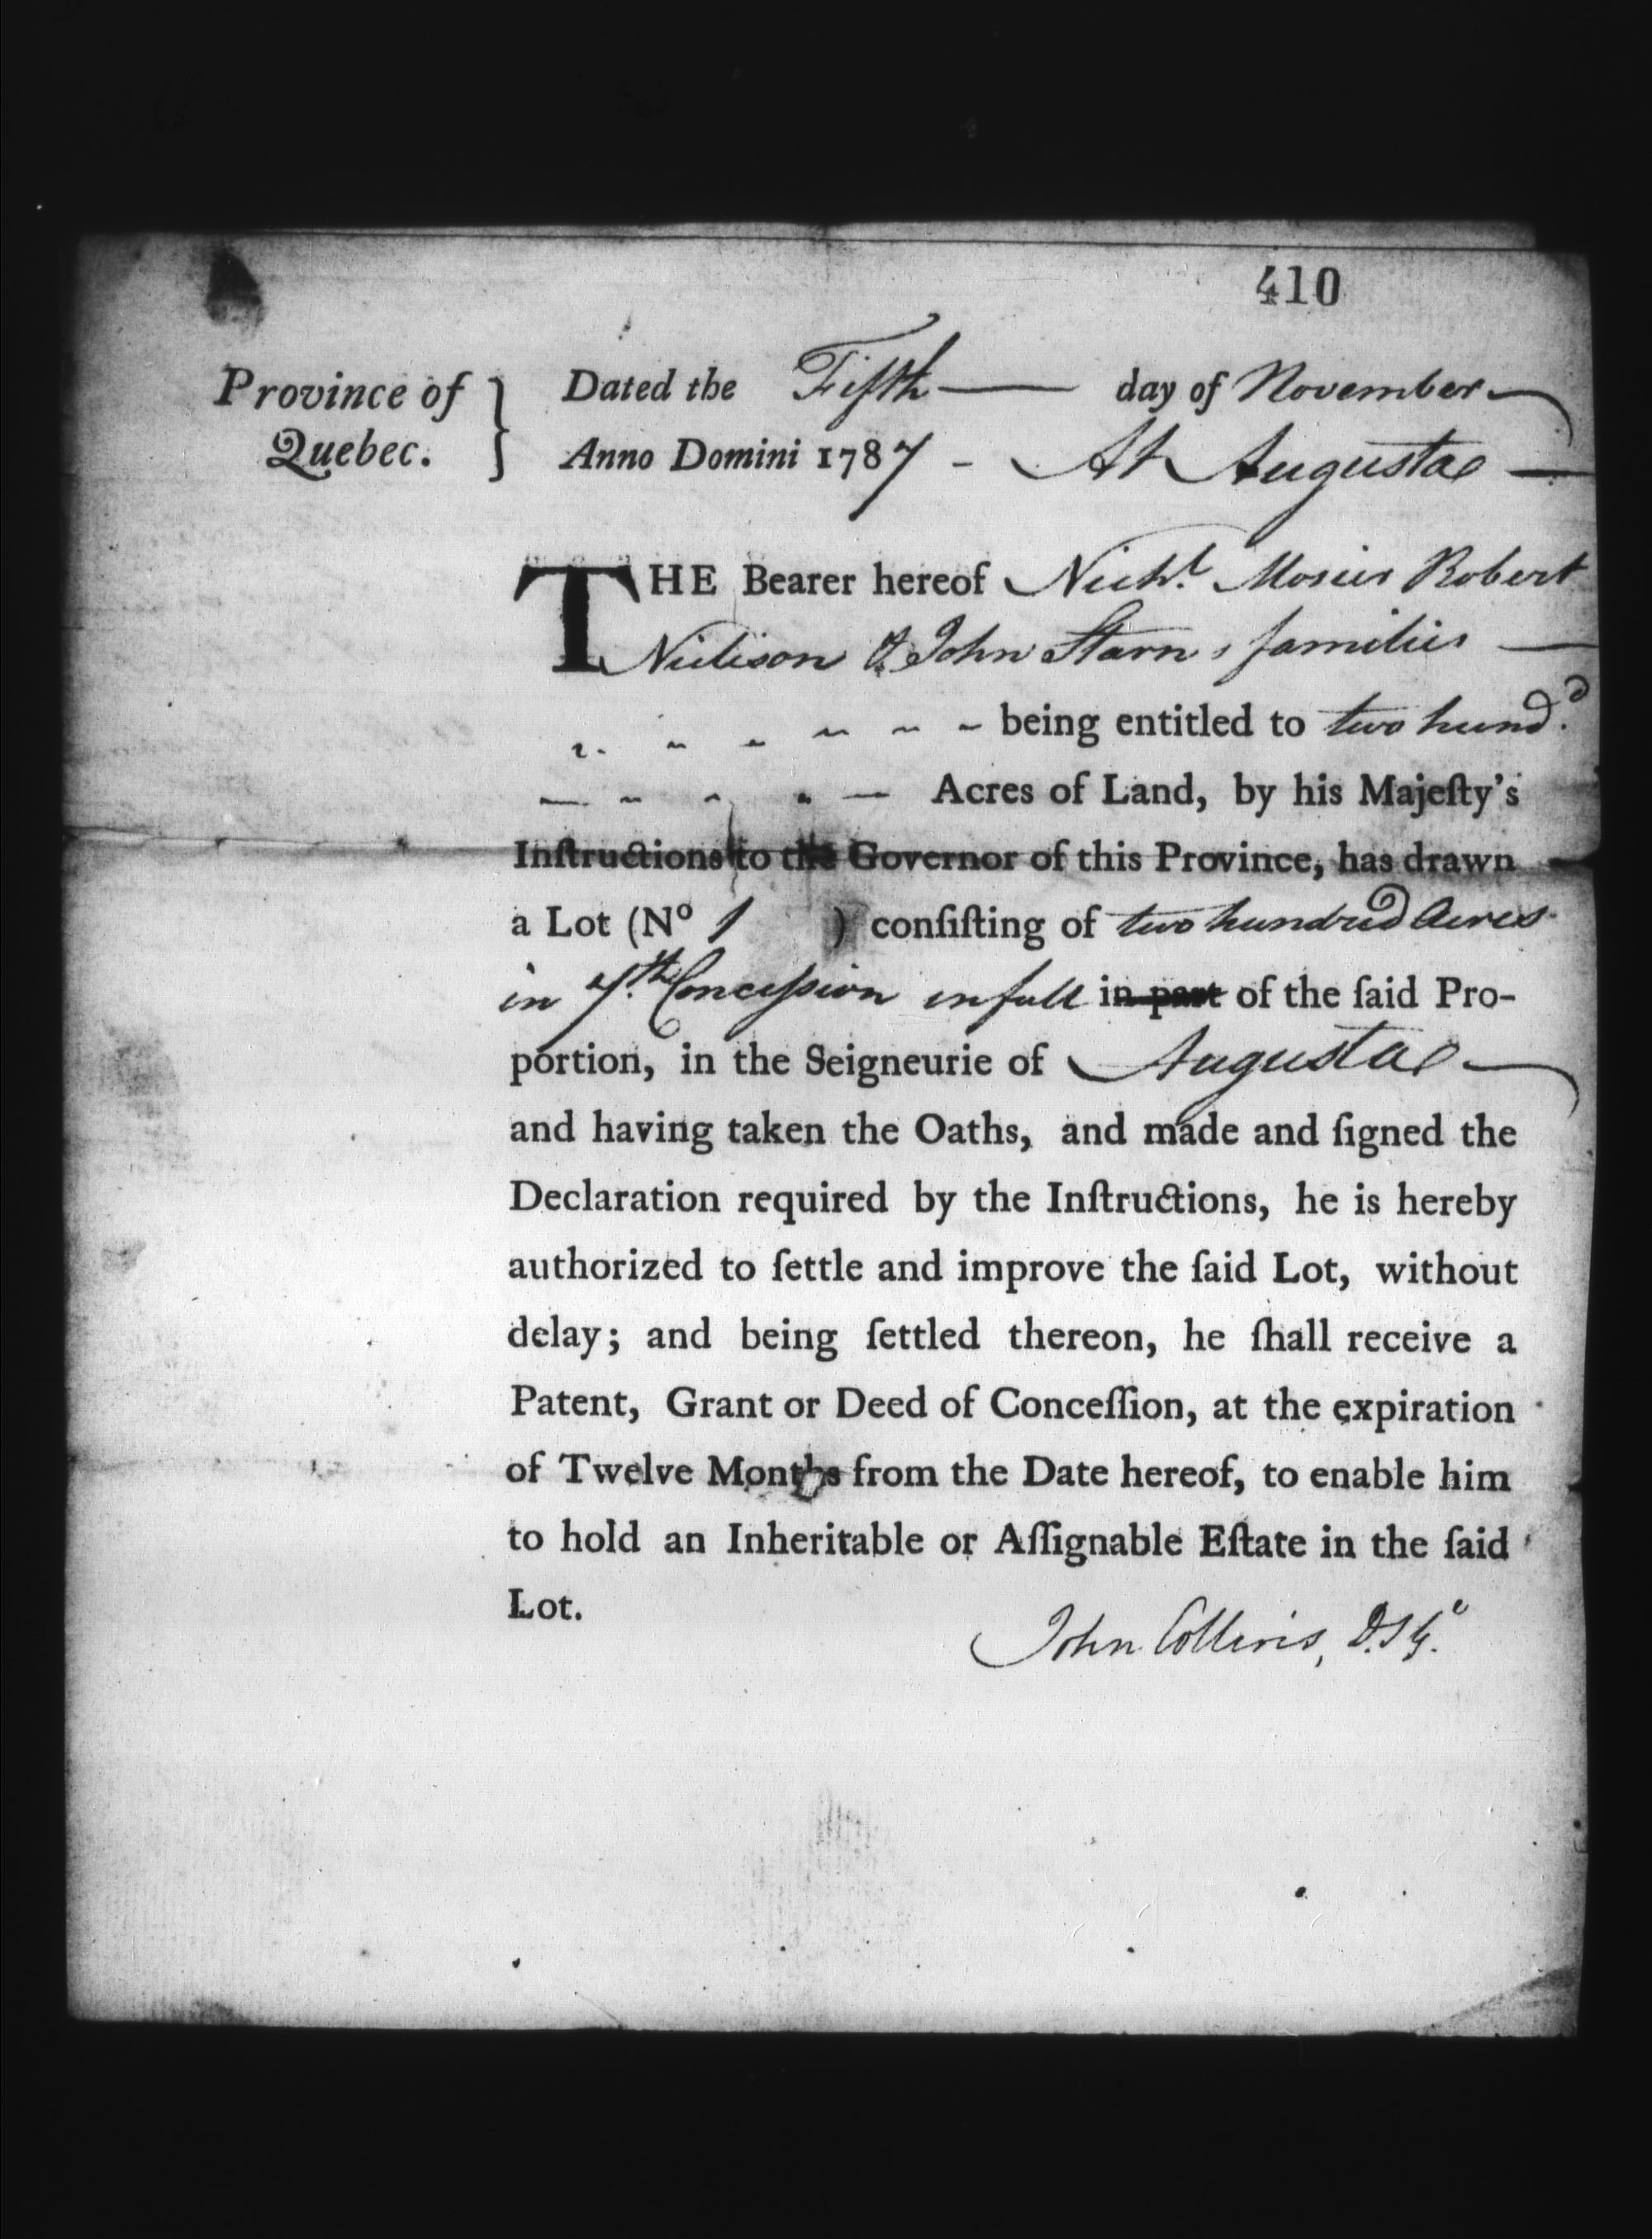 410
Province of Quebec. } Dated the Fifth — day of November —
Anno Domini 1787 - At Augusta —
THE Bearer hereof Nichl. Mosier Robert
Neilison & John Starns families —
being entitled to two hund.d
Acres of Land, by his Majeſty's
Inſtructions to the Governor of this Province, has drawn
a Lot (No 1 ) conſiſting of two hundred Acres
in 7.th Conceſsion in full in part of the ſaid Pro-
portion, in the Seigneurie of Augusta —
and having taken the Oaths, and made and ſigned the
Declaration required by the Inſtructions, he is hereby
authorized to ſettle and improve the ſaid Lot, without
delay; and being ſettled thereon, he ſhall receive a
Patent, Grant or Deed of Conceſſion, at the expiration
of Twelve Months from the Date hereof, to enable him
to hold an Inheritable or Aſſignable Eſtate in the ſaid
Lot.
John Collins, D.S.G.